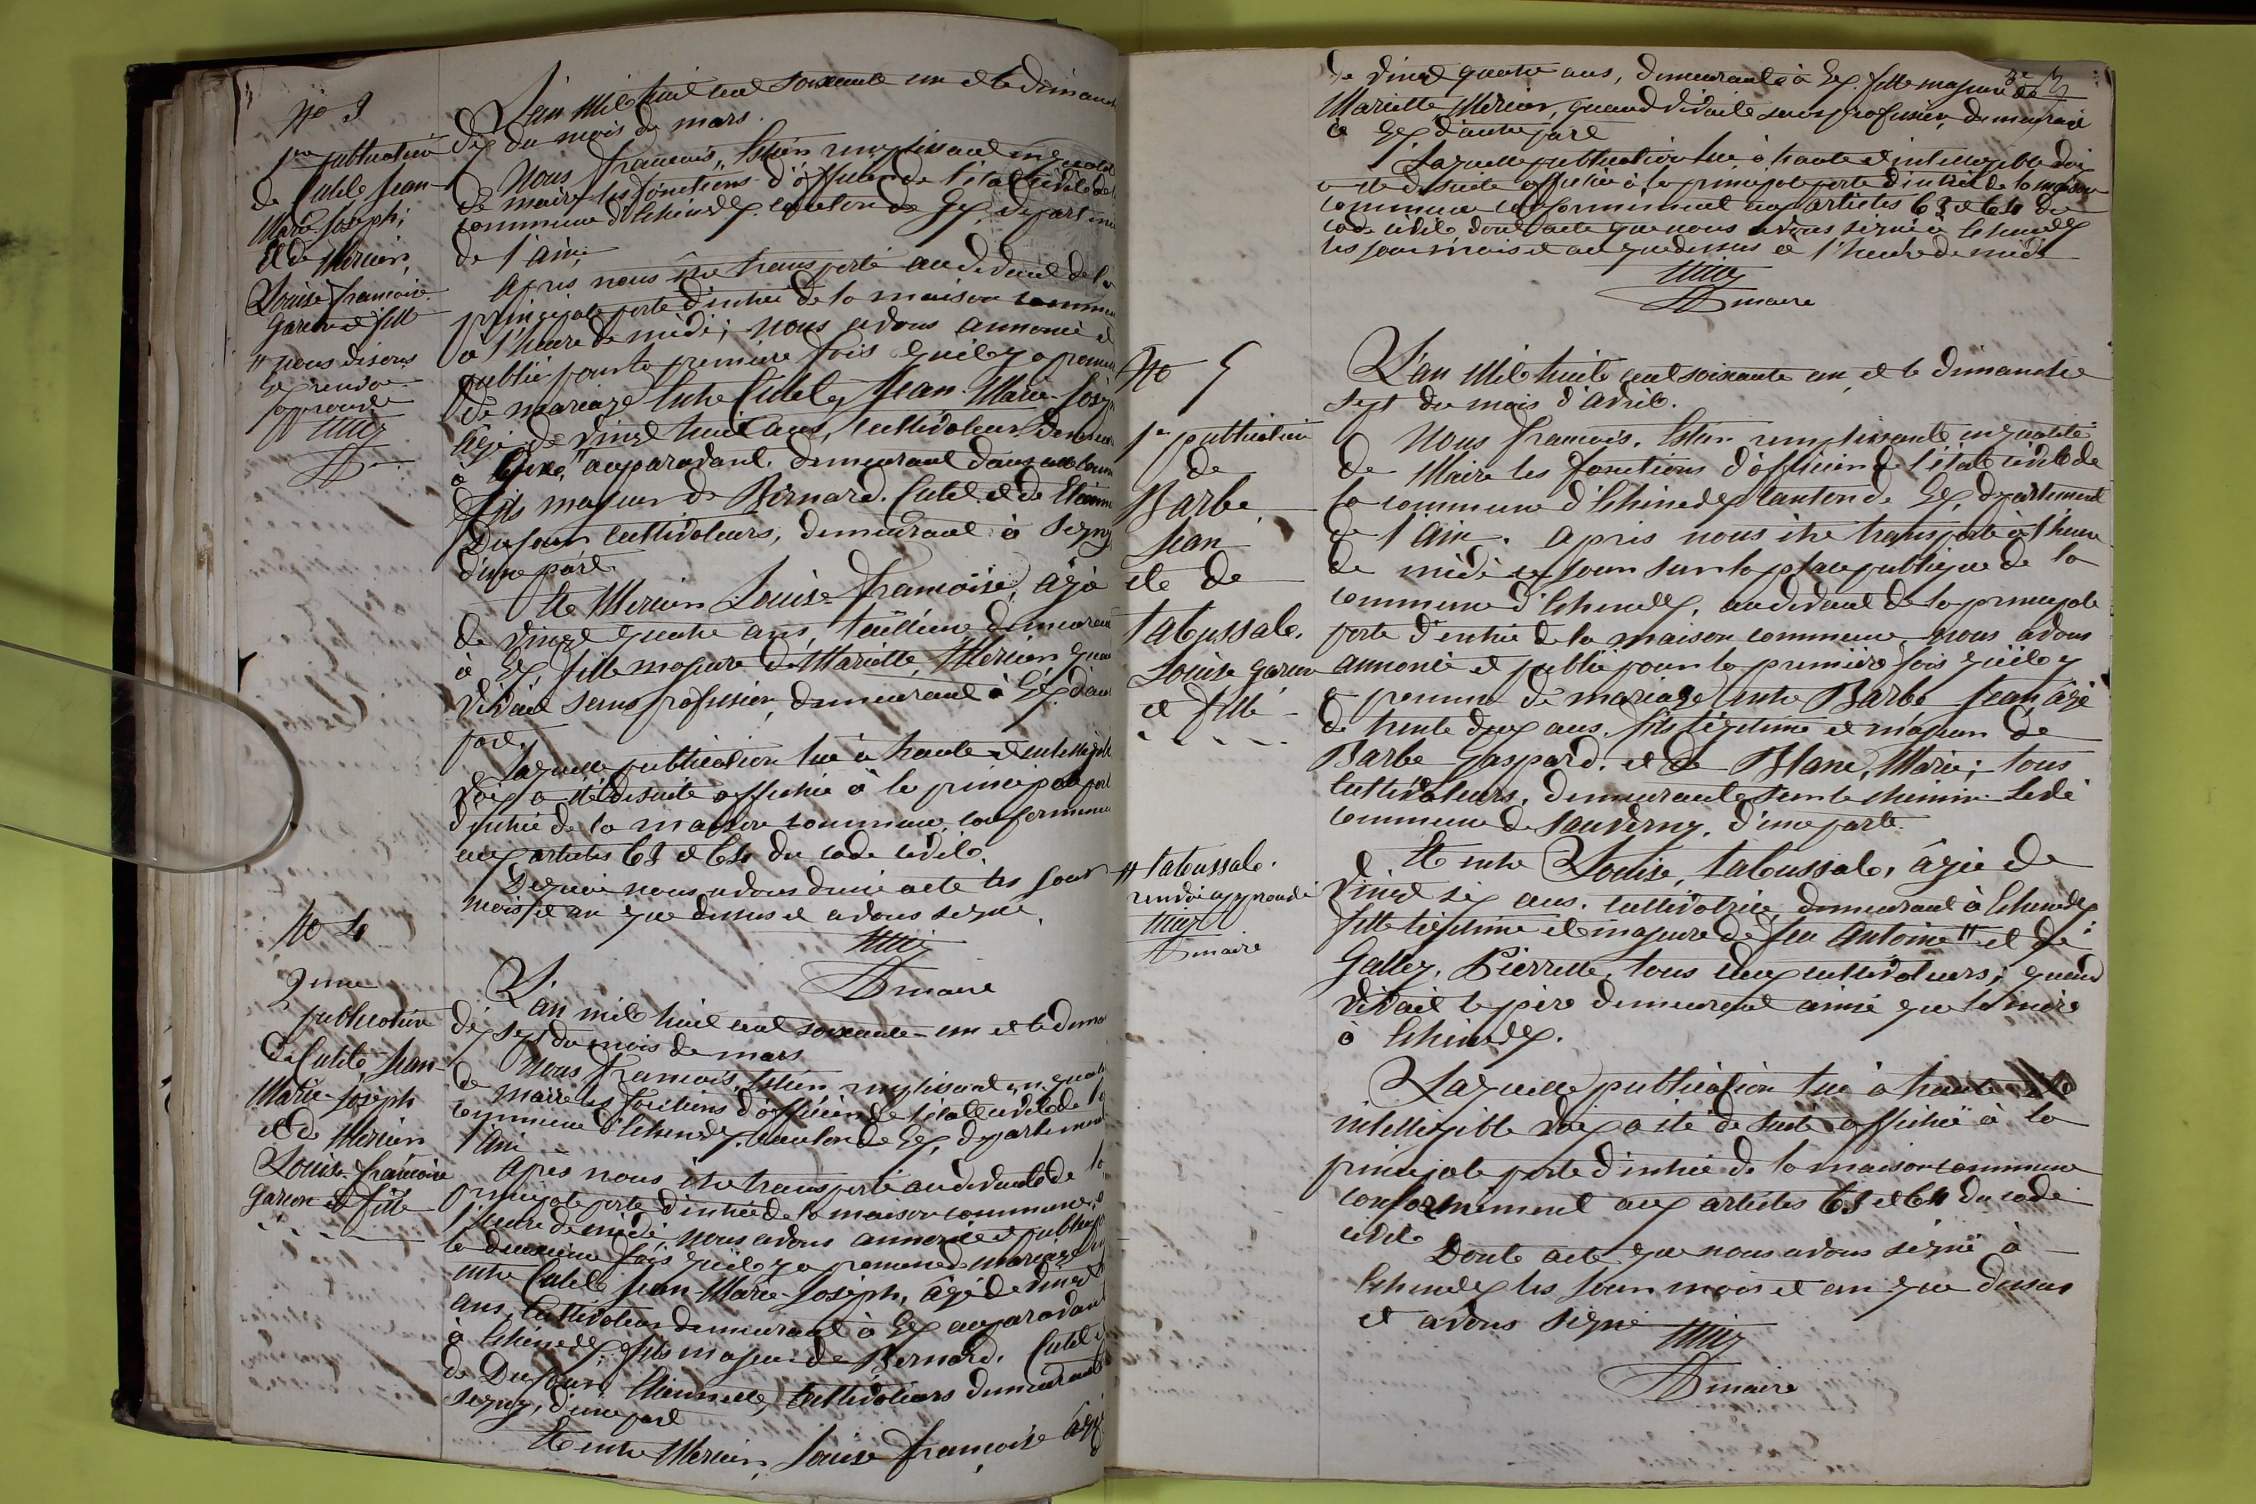 No 3
1re publication
de Cutel Jean
Marie Joseph,
Et de Mercier,
Louise françoise
Garçon et fille
# nous disons
Gex renvoi
approuvé
L'an Mil huit cent soixante un et le dimanche
dix du mois de mars.
Nous françois, remplissant en qualité
de maire les fonctions d'officier de l'état civil de la
commune d'Echenevex canton de Gex, département
de l'ain,
Après nous être transporté au devant de la
principale porte d'entrée de la maison commune
à l'heure de midi; nous avons annoncé et
publié pour la première fois qu'il y a promesse
de mariage Entre Cutel, Jean Marie Joseph
âgé de vingt huit ans, cultivateur demeurant
à # auparavant demeurant dans cette commune
fils majeur de Bernard Cutel et de
Dufour cultivateurs, demeurant à Segny
d'une part.
Et Mercier Louise françoise, âgée
de vingt quatre ans, tailleuse demeurant
à Gex, fille majeure de Mariette Mercier quand
vivait sans profession, demeurant à Gex d'autre
part.
Laquelle publication lue à haute et intelligible
voix a été desuite affichée à la principale porte
d'entrée de la maison commune, conformément
aux articles 63 et 64 du code civil.
De quoi nous avons dressé acte les jour
mois et an que dessus et avons signé.
maire
No 4
2me
publication
de Cutel, Jean
Marie Joseph
et de Mercier
Louise françoise
Garçon et fille
L'an mil huit cent soixante un et le dimanche
dix sept du mois de mars
Nous françois, remplissant en qualité
de maire les fonctions d'officier de l'état civil de la
commune d'Echenevex, canton de Gex, département
l'ain
Après nous être transporté au devant de la
principale porte d'entrée de la maison commune, à
l'heure de midi, nous avons annoncé et publié
la deuxième fois qu'il y a promesse de mariage
entre Cutel Jean Marie Joseph, âgé de vingt
ans, Cultivateur demeurant à Gex auparavant
à Echenevex, fils majeur de Bernard Cutel et
de Dufour, Etiennette, cultivateurs demeurant
Segny, d'une part
Et entre Mercier, Louise françoise âgée
de vingt quatre ans, demeurant à Gex, fille majeure de
Mariette Mercier, quand vivait sans profession, demeurant
à Gex d'autre part
Laquelle publication lue à haute et intelligible voix
a été desuite affichée à la principale porte d'entrée de la maison
commune conformément aux articles 63 et 64 du
code civil dont acte que nous avons signé à Echenevex
les jour mois et an que dessus à l'heure de midi
maire
No 5
1re publication
de
Barbe
Jean
et de
Tabussale.
Louise garçon
et fille
L'an Mil huit cent soixante un, et le dimanche
sept du mois d'avril.
Nous françois, remplissant en qualité
de Maire les fonctions d'officier de l'état civil de
la commune d'Echenevex canton de Gex, département
de l'ain. Après nous être transporté à l'heure
de midi ce jour sur la place publique de la
commune d'Echenevex, au devant de la principale
porte d'entrée de la maison commune, nous avons
annoncé et publié pour la première fois qu'il y
a promesse de mariage entre Barbe Jean âgé
de trente deux ans, fils légitime et majeur de
Barbe Gaspard, et de Blanc, Marie; tous
cultivateurs, demeurant sur le chemin
commune de Sauverny, d'une part.
Et entre Louise, Tabussale, âgée de
vingt six ans, cultivatrice, demeurant à Echenevex
fille légitime et majeure de feu Antoine # et de
Gallay, Pierrette, tous deux cultivateurs; quand
vivait le père demeurant ainsi que la mère
à Echenevex.
# Tabussale.
renvoi approuvé
maire
Laquelle publication lue à haute et
intelligible voix a été de suite affichée à la
principale porte d'entrée de la maison commune
conformément aux articles 63 et 64 du code
civil
Dont acte que nous avons signé à
Echenevex les jour mois et an que dessus
et avons signé
maire